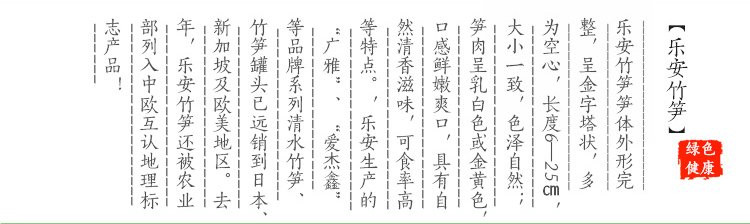 【乐安竹笋】
绿色
健康
乐安竹笋笋体外形完
整，呈金字塔状，多
为空心，长度6—25cm，
大小一致，色泽自然；
笋肉呈乳白色或金黄色，
口感鲜嫩爽口，具有自
然清香滋味，可食率高
等特点。，乐安生产的
“广雅”、“爱杰鑫”
等品牌系列清水竹笋、
竹笋罐头已远销到日本、
新加坡及欧美地区。去
年，乐安竹笋还被农业
部列入中欧互认地理标
志产品！